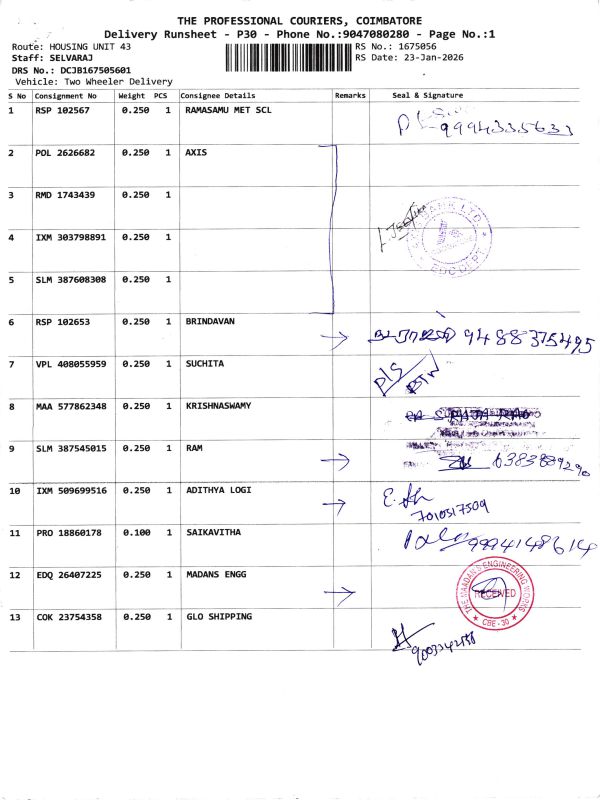 THE PROFESSIONAL COURIERS, COIMBATORE
Delivery Runsheet - P30 - Phone No.:9047080280 - Page No.:1
Route: HOUSING UNIT 43
RS No.: 1675056
Staff: SELVARAJ
RS Date: 23-Jan-2026
DRS No.: DCJB167505601
Vehicle: Two Wheeler Delivery
S No Consignment No Weight PCS Consignee Details Remarks Seal & Signature
1 RSP 102567 0.250 1 RAMASAMU MET SCL
9994335633
2 POL 2626682 0.250 1 AXIS
3 RMD 1743439 0.250 1
4 IXM 303798891 0.250 1
BANK LTD
EDC DEPT
5 SLM 387608308 0.250 1
6 RSP 102653 0.250 1 BRINDAVAN
9488375495
7 VPL 408055959 0.250 1 SUCHITA
D/S
8 MAA 577862348 0.250 1 KRISHNASWAMY
9 SLM 387545015 0.250 1 RAM
6383889290
10 IXM 509699516 0.250 1 ADITHYA LOGI
7010517509
11 PRO 18860178 0.100 1 SAIKAVITHA
9994148614
12 EDQ 26407225 0.250 1 MADANS ENGG
THE MAADAN'S ENGINEERING WORKS
RECEIVED
CBE - 30
13 COK 23754358 0.250 1 GLO SHIPPING